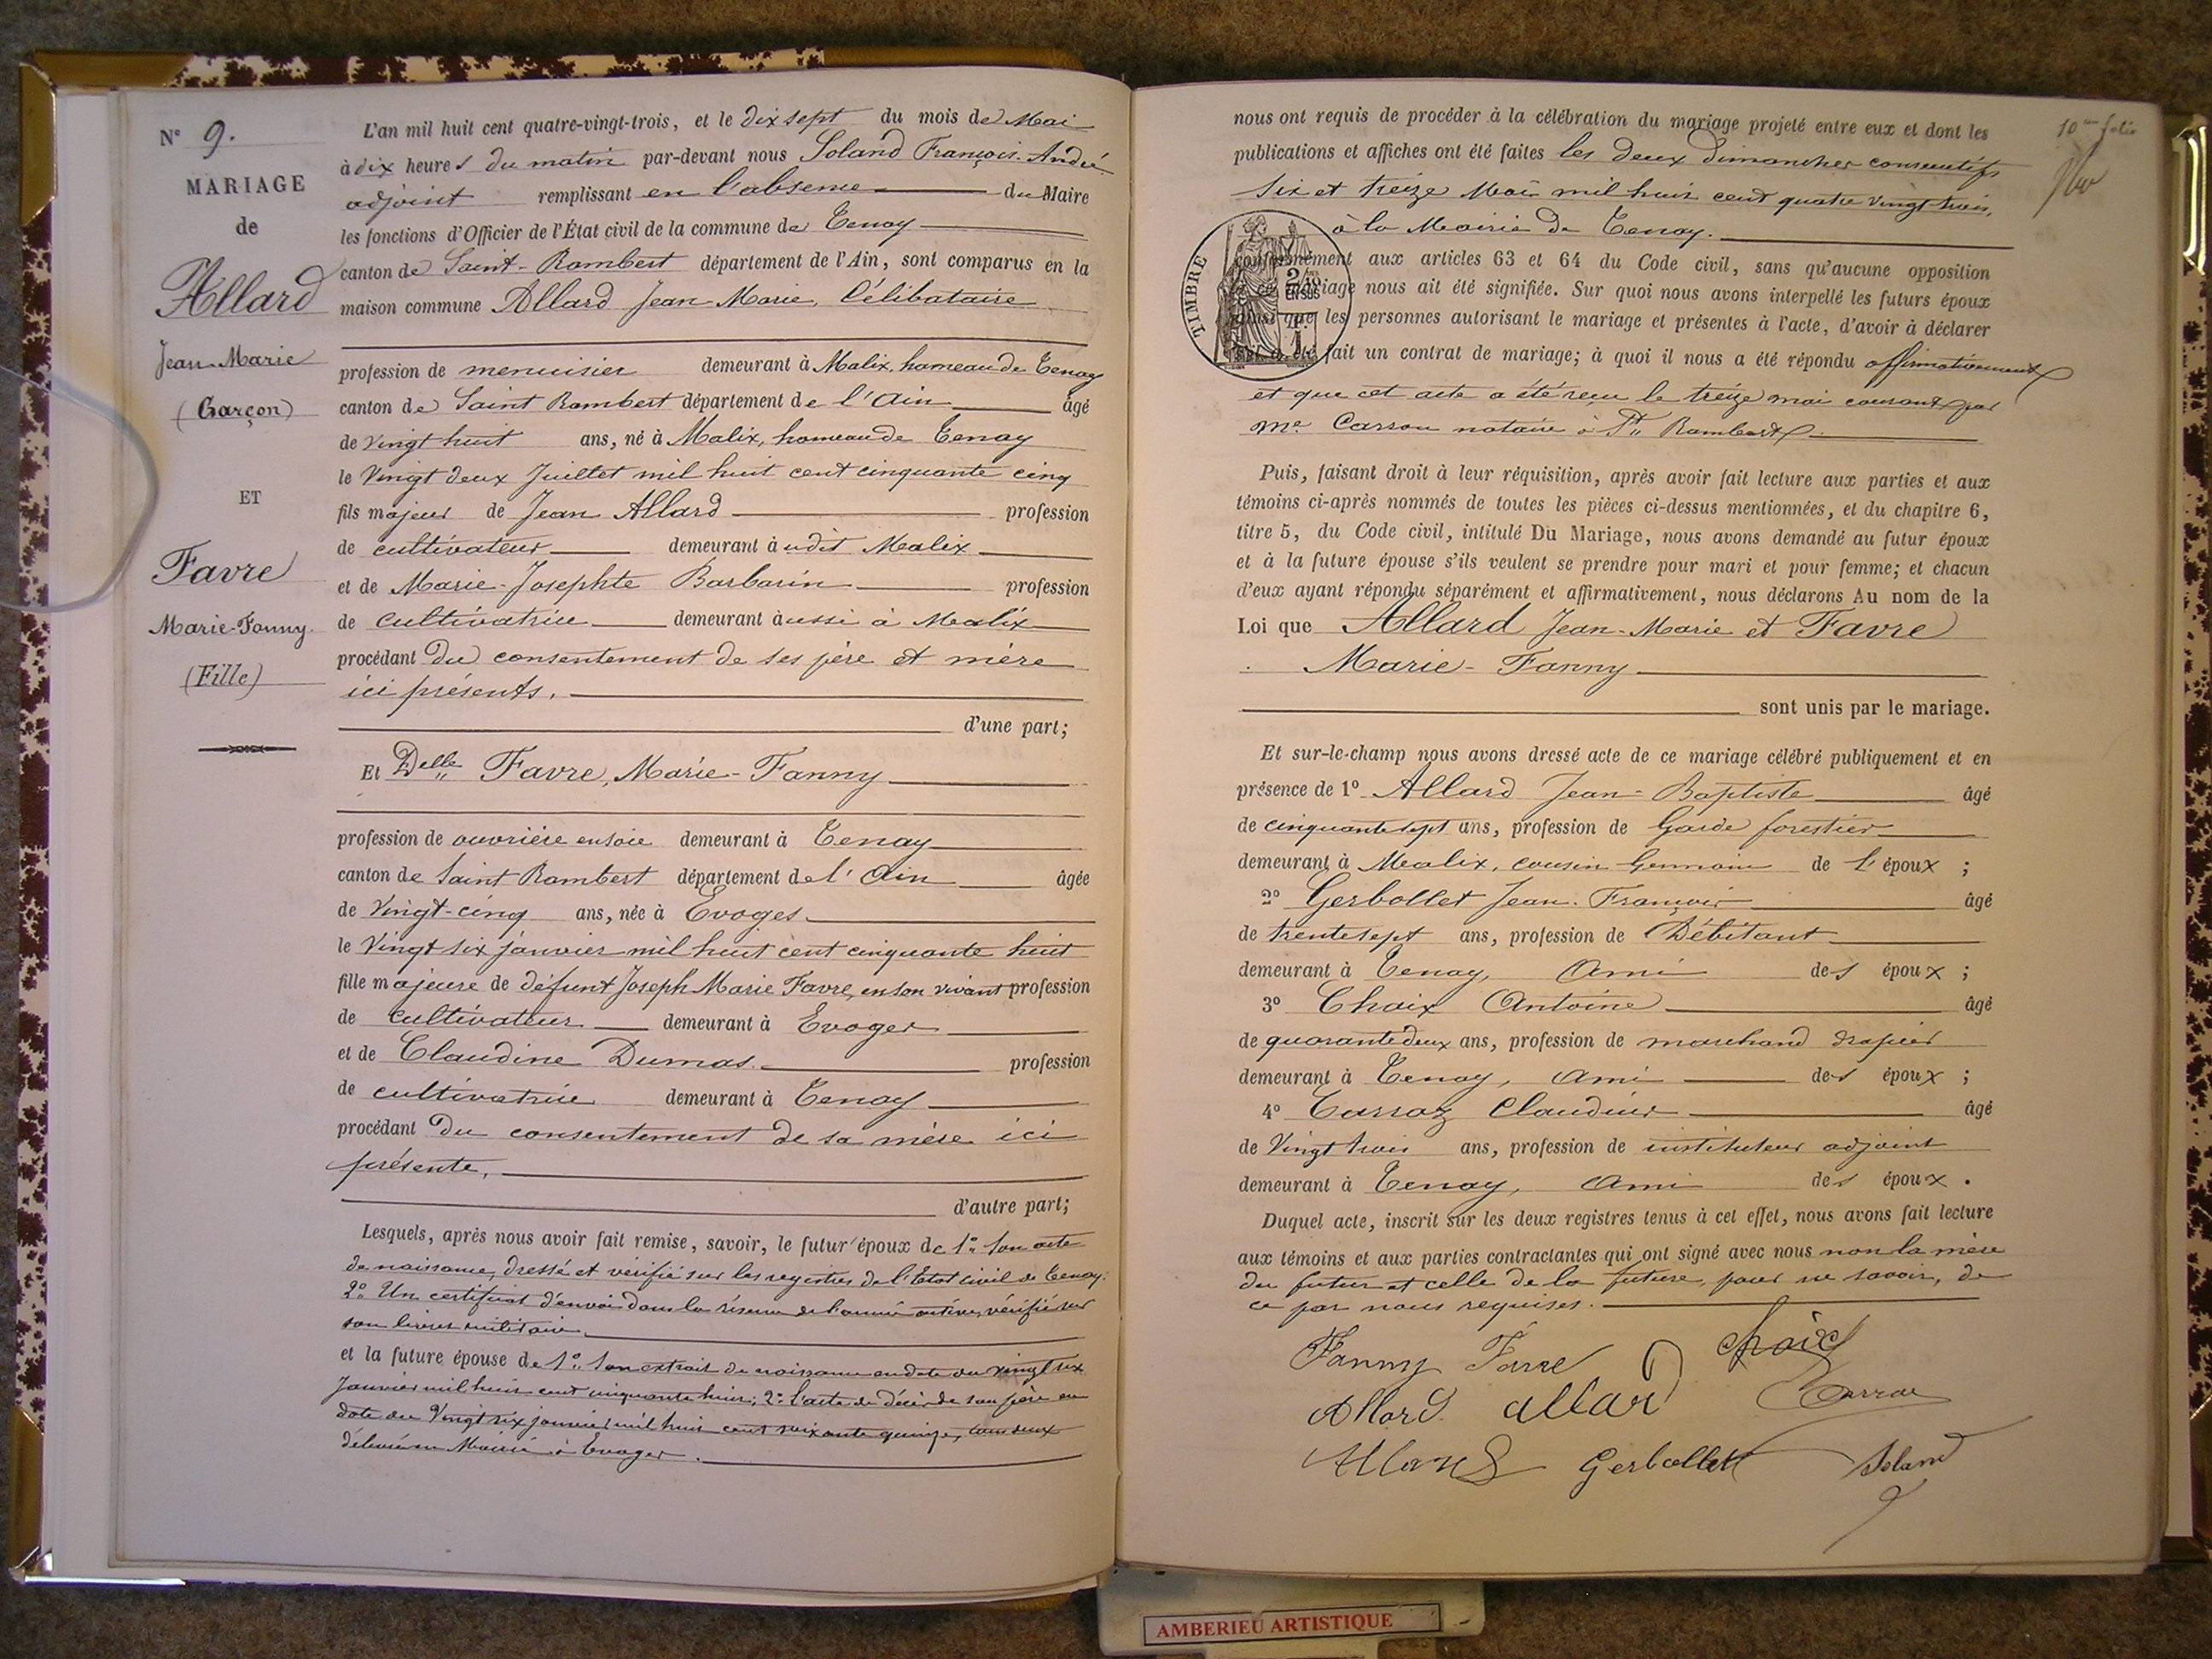 N° 9.
MARIAGE
de
Allard
Jean-Marie
(Garçon)
ET
Favre
Marie-Fanny.
(Fille)
L'an mil huit cent quatre-vingt-trois, et le dix sept du mois de Mai
à dix heures du matin par-devant nous Soland François-André
adjoint remplissant en l'absence du Maire
les fonctions d'Officier de l'État civil de la commune de Tenay
canton de Saint-Rambert département de l'Ain, sont comparus en la
maison commune Allard Jean-Marie, Célibataire
profession de menuisier demeurant à Malix, hameau de Tenay
canton de Saint Rambert département de l'Ain âgé
de vingt huit ans, né à Malix, hameau de Tenay
le Vingt deux Juillet mil huit cent cinquante cinq
fils majeur de Jean Allard profession
de cultivateur demeurant à udit Malix
et de Marie-Josephte Barbarin profession
de cultivatrice demeurant aussi à Malix
procédant Du consentement de ses père et mère
ici présents.
d'une part;
Et Delle Favre, Marie-Fanny
profession de ouvrière en soie demeurant à Tenay
canton de Saint Rambert département de l'Ain âgée
de Vingt-cinq ans, née à Evoges
le Vingt six janvier mil huit cent cinquante huit
fille majeure de défunt Joseph Marie Favre, en son vivant profession
de cultivateur demeurant à Evoges
et de Claudine Dumas. profession
de cultivatrice demeurant à Tenay
procédant Du consentement de sa mère ici
présente,
d'autre part;
Lesquels, après nous avoir fait remise, savoir, le futur époux de 1° Son acte
de naissance, dressé et vérifié sur les registres de l'Etat civil de Tenay;
2° Un certificat d'envoi dans la réserve de l'armée active, vérifié sur
son livret militaire
et la future épouse de 1° Son extrait de naissance en date du vingt six
Janvier mil huit cent cinquante huit; 2° l'acte de décès de son père en
date du Vingt six janvier mil huit cent soixante quinze, tous deux
délivrés en Mairie à Evoges.
10me folio
nous ont requis de procéder à la célébration du mariage projeté entre eux et dont les
publications et affiches ont été faites les deux dimanches consécutifs
six et treize Mai mil huit cent quatre vingt trois,
à la Mairie de Tenay.
TIMBRE
2/10
EN SUS
conformément aux articles 63 et 64 du Code civil, sans qu'aucune opposition
à ce mariage nous ait été signifiée. Sur quoi nous avons interpellé les futurs époux
ainsi que les personnes autorisant le mariage et présentes à l'acte, d'avoir à déclarer
s'il a été fait un contrat de mariage; à quoi il nous a été répondu affirmativement
et que cet acte a été reçu le treize mai courant par
Me Carrou notaire à St Rambert
Puis, faisant droit à leur réquisition, après avoir fait lecture aux parties et aux
témoins ci-après nommés de toutes les pièces ci-dessus mentionnées, et du chapitre 6,
titre 5, du Code civil, intitulé Du Mariage, nous avons demandé au futur époux
et à la future épouse s'ils veulent se prendre pour mari et pour femme; et chacun
d'eux ayant répondu séparément et affirmativement, nous déclarons Au nom de la
Loi que Allard Jean-Marie et Favre
Marie-Fanny
sont unis par le mariage.
Et sur-le-champ nous avons dressé acte de ce mariage célébré publiquement et en
présence de 1° Allard Jean-Baptiste âgé
de cinquante sept ans, profession de Garde forestier
demeurant à Malix, cousin Germain de l'époux ;
2° Gerbollet Jean-François âgé
de trente sept ans, profession de Débitant
demeurant à Tenay, Ami des époux ;
3° Chaix Antoine âgé
de quarante deux ans, profession de marchand drapier
demeurant à Tenay, Ami des époux ;
4° Carraz Claudius âgé
de Vingt trois ans, profession de instituteur adjoint
demeurant à Tenay, Ami des époux.
Duquel acte, inscrit sur les deux registres tenus à cet effet, nous avons fait lecture
aux témoins et aux parties contractantes qui ont signé avec nous non la mère
du futur et celle de la future, pour ne savoir, de
ce par nous requises.
Fanny Favre Chaix
Allard allard Carraz
Allard Gerbollet Soland
AMBERIEU ARTISTIQUE